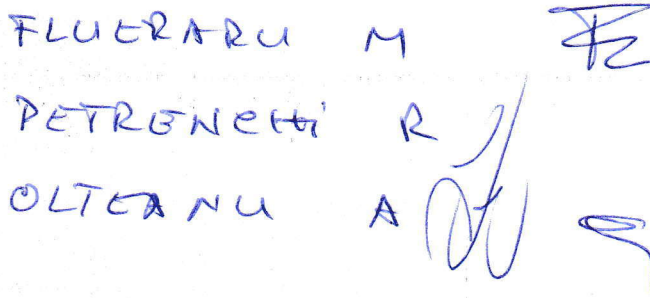 FLUERARU M
PETRENCHi R
OLTEANU A